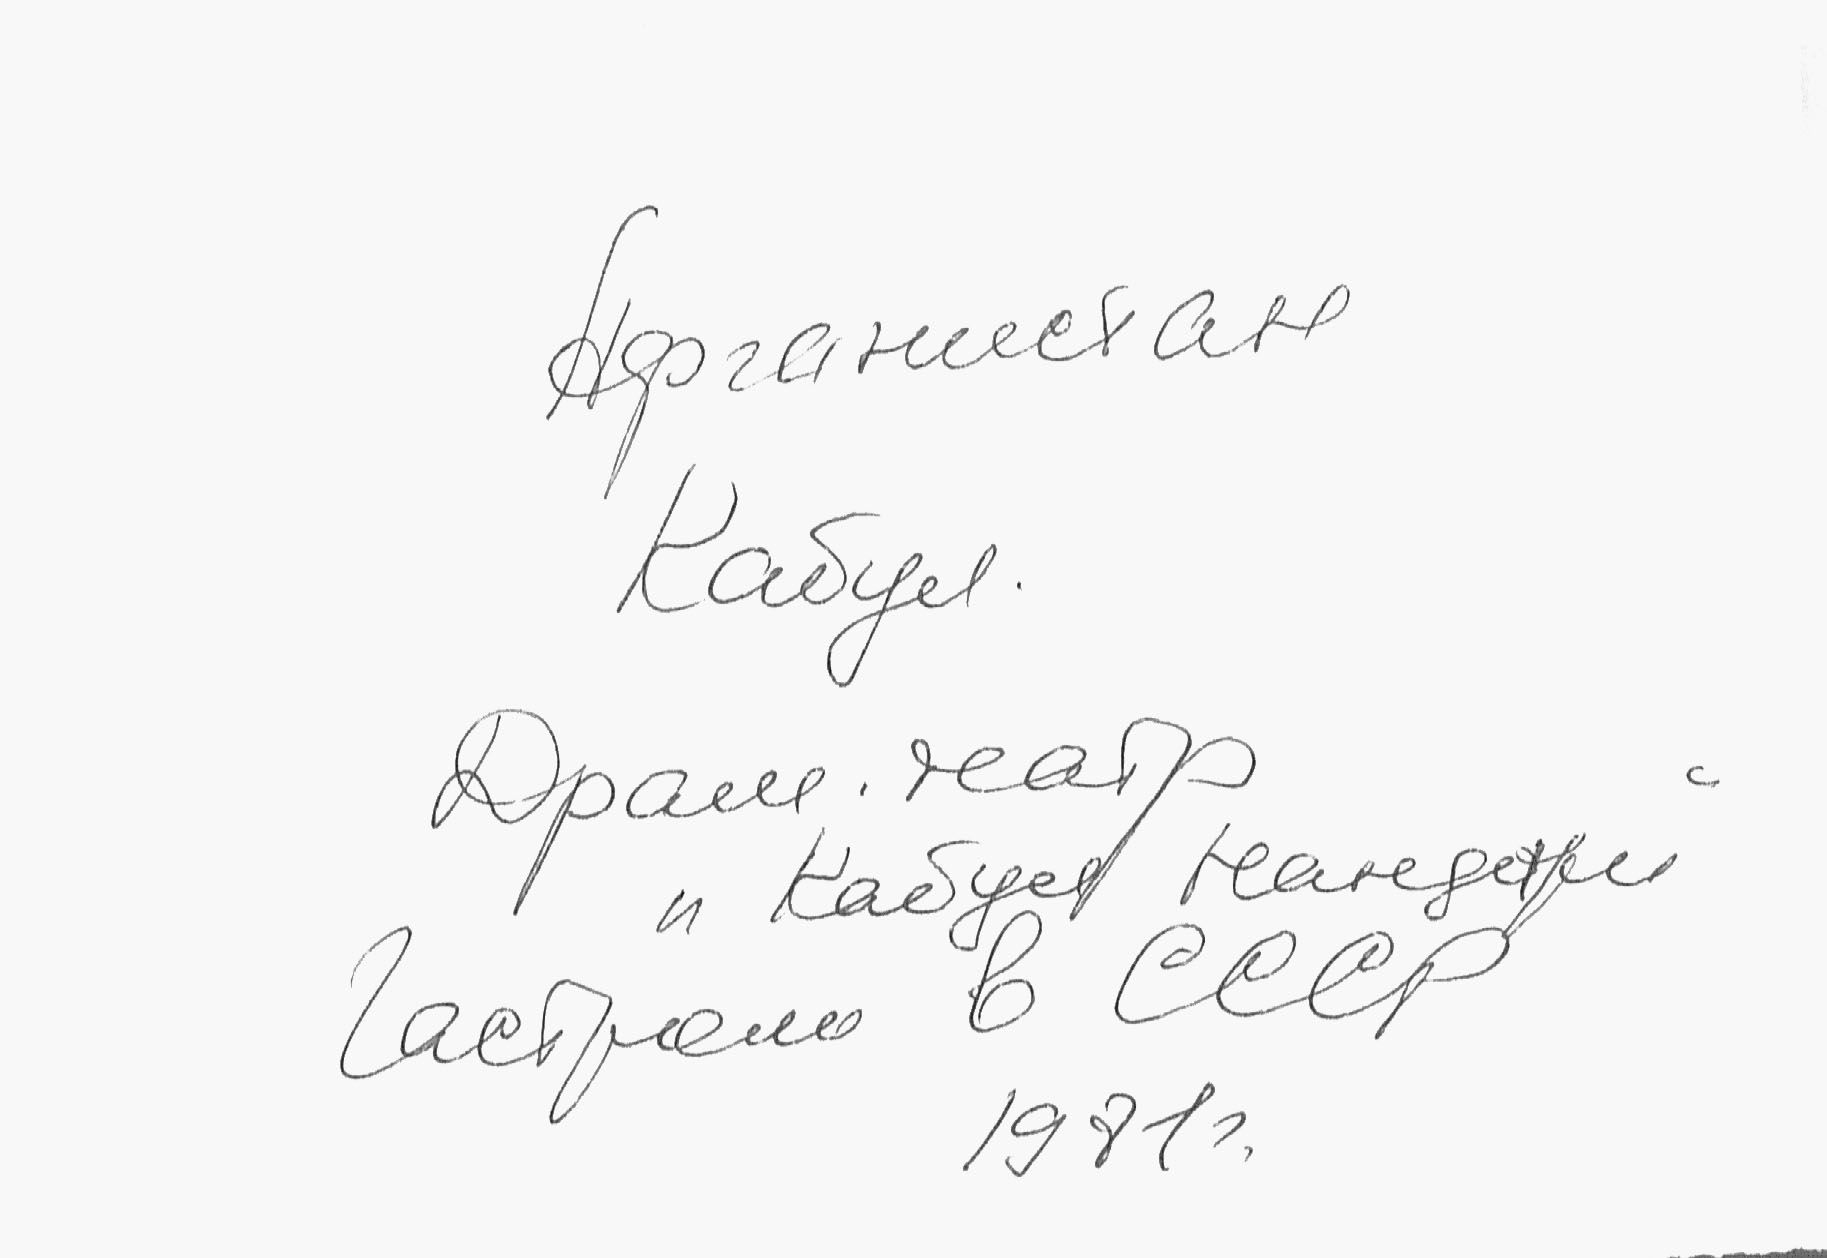 Афганистан
Кабул.
Драм. театр
"Кабул нандари"
Гастроли в СССР
1981г.